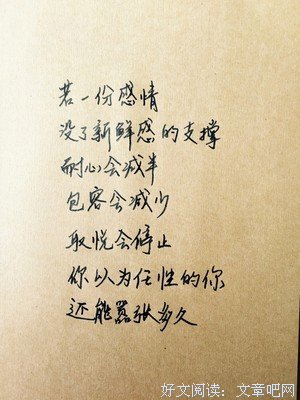 若一份感情
没了新鲜感的支撑
耐心会减半
包容会减少
取悦会停止
你以为任性的你
还能嚣张多久
好文阅读：文章吧网